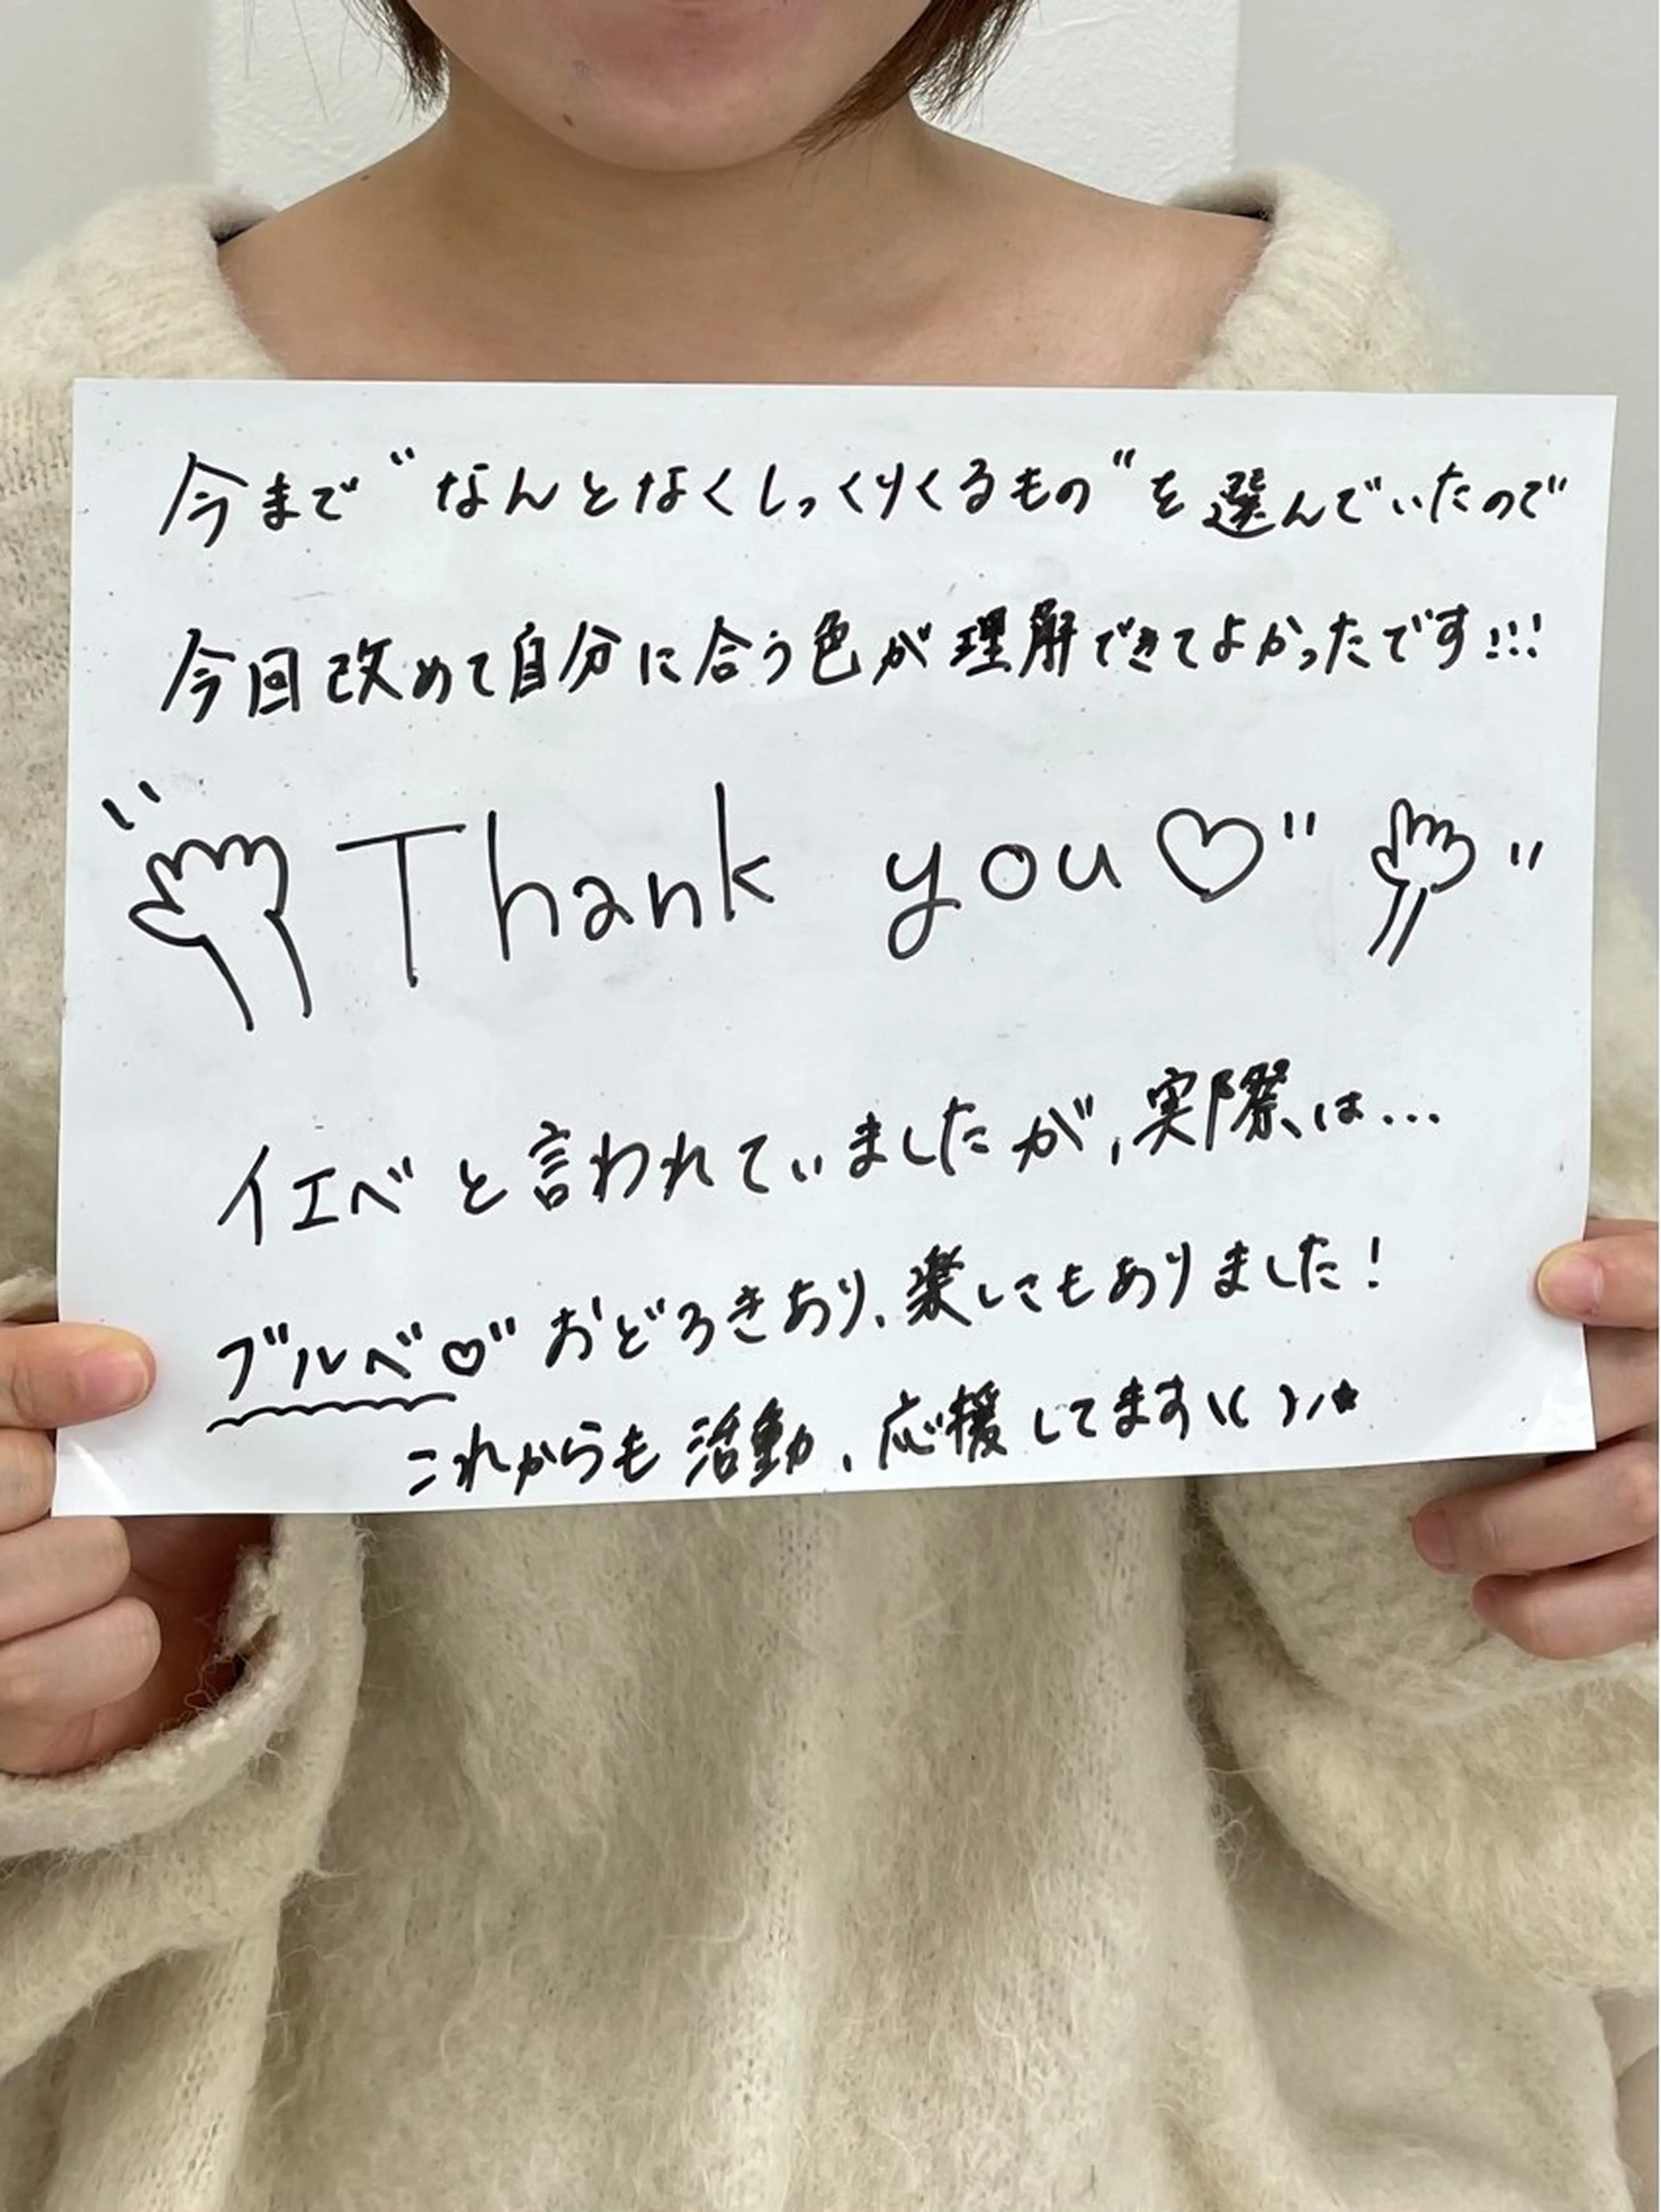 今まで"なんとなくしっくりくるもの"を選んでいたので
今回改めて自分に合う色が理解できてよかったです!!!
Thank you♡"
イエベと言われていましたが、実際は...
ブルベ♡"おどろきあり、楽しさもありました!
これからも活動、応援してます\( )/★